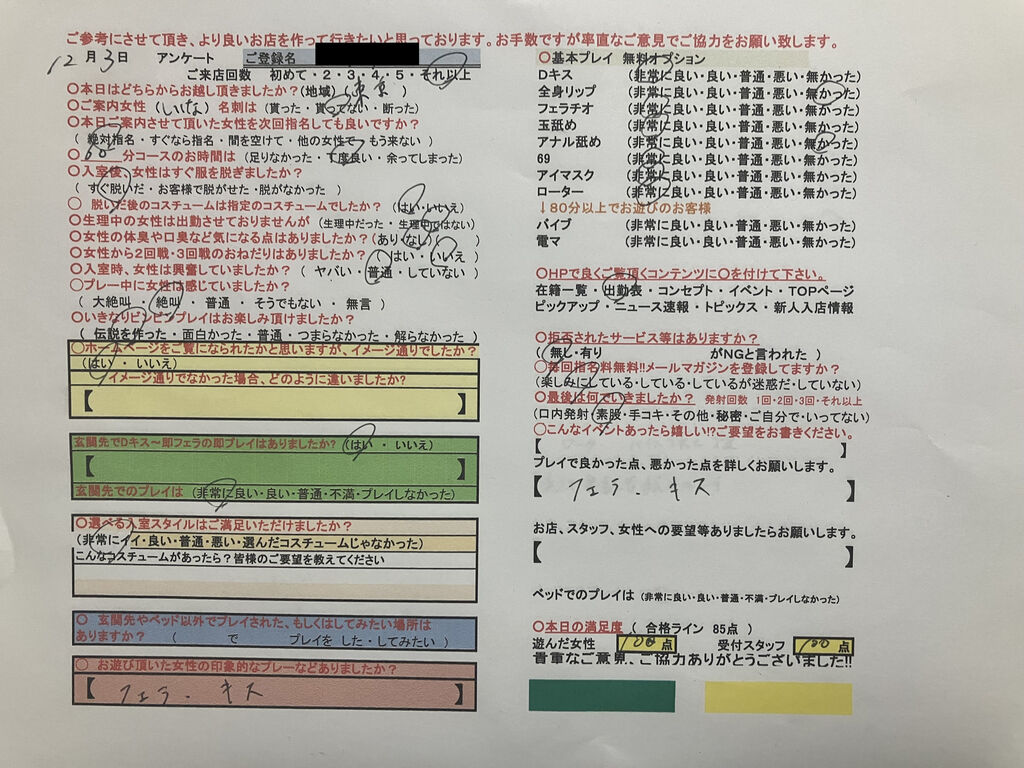 ご参考にさせて頂き、より良いお店を作って行きたいと思っております。お手数ですが率直なご意見でご協力をお願い致します。
12月3日 アンケート ご登録名
ご来店回数 初めて・2・3・4・5・それ以上
〇本日はどちらからお越し頂きましたか?(地域 東京 )
〇ご案内女性 (いいな) 名刺は (貰った・貰ってない・断った)
〇本日ご案内させて頂いた女性を次回指名しても良いですか?
( 絶対指名・すぐなら指名・間を空けて・他の女性で・もう来ない )
〇 60 分コースのお時間は (足りなかった・丁度良い・余ってしまった)
〇入室後、女性はすぐ服を脱ぎましたか?
( すぐ脱いだ・お客様で脱がせた・脱がなかった )
〇 脱いだ後のコスチュームは指定のコスチュームでしたか? (はい・いいえ)
〇生理中の女性は出勤させておりませんが (生理中だった・生理中ではない)
〇女性の体臭や口臭など気になる点はありましたか?(あり・なし( )
〇女性から2回戦・3回戦のおねだりはありましたか? ( はい・いいえ )
〇入室時、女性は興奮していましたか? ( ヤバい・普通・していない )
〇プレー中に女性は感じていましたか?
( 大絶叫・絶叫・普通・そうでもない・無言 )
〇いきなりビンビンプレイはお楽しみ頂けましたか?
( 伝説を作った・面白かった・普通・つまらなかった・解らなかった )
〇ホームページをご覧になられたかと思いますが、イメージ通りでしたか?
(はい・いいえ)
イメージ通りでなかった場合、どのように違いましたか?
【 】
玄関先でDキス～即フェラの即プレイはありましたか? (はい・いいえ)
【 】
玄関先でのプレイは (非常に良い・良い・普通・不満・プレイしなかった)
〇選べる入室スタイルはご満足いただけましたか?
(非常にイイ・良い・普通・悪い・選んだコスチュームじゃなかった)
こんなコスチュームがあったら?皆様のご要望を教えてください
〇 玄関先やベッド以外でプレイされた、もしくはしてみたい場所は
ありますか? ( で プレイを した・してみたい )
〇 お遊び頂いた女性の印象的なプレーなどありましたか?
【 フェラ. キス 】
〇基本プレイ 無料オプション
Dキス (非常に良い・良い・普通・悪い・無かった)
全身リップ (非常に良い・良い・普通・悪い・無かった)
フェラチオ (非常に良い・良い・普通・悪い・無かった)
玉舐め (非常に良い・良い・普通・悪い・無かった)
アナル舐め (非常に良い・良い・普通・悪い・無かった)
69 (非常に良い・良い・普通・悪い・無かった)
アイマスク (非常に良い・良い・普通・悪い・無かった)
ローター (非常に良い・良い・普通・悪い・無かった)
↓80分以上でお遊びのお客様
バイブ (非常に良い・良い・普通・悪い・無かった)
電マ (非常に良い・良い・普通・悪い・無かった)
〇HPで良くご覧頂くコンテンツに〇を付けて下さい。
在籍一覧・出勤表・コンセプト・イベント・TOPページ
ピックアップ・ニュース速報・トピックス・新人入店情報
〇拒否されたサービス等はありますか?
( 無し・有り がNGと言われた )
〇毎回指名料無料!!メールマガジンを登録してますか?
(楽しみにしている・している・しているが迷惑だ・していない)
〇最後は何でいきましたか? 発射回数 1回・2回・3回・それ以上
(口内発射・素股・手コキ・その他・秘密・ご自分で・いってない)
〇こんなイベントあったら嬉しい!?ご要望をお書きください。
【 】
プレイで良かった点、悪かった点を詳しくお願いします。
【 フェラ. キス 】
お店、スタッフ、女性への要望等ありましたらお願いします。
【 】
ベッドでのプレイは (非常に良い・良い・普通・不満・プレイしなかった)
〇本日の満足度 ( 合格ライン 85点 )
遊んだ女性 100 点 受付スタッフ 100 点
貴重なご意見、ご協力ありがとうございました!!